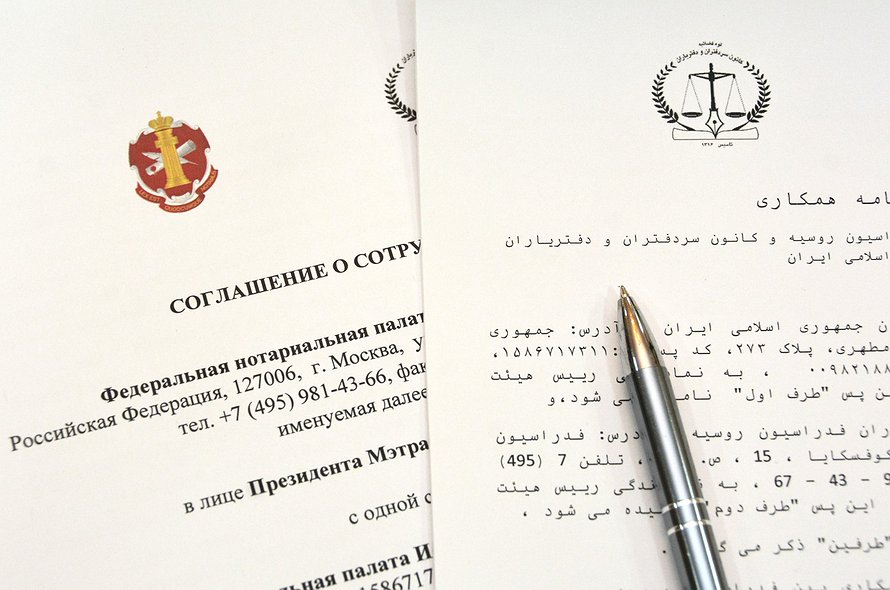 LEX EST QUODCUMQUE NOTAMUS
СОГЛАШЕНИЕ О СОТРУ
Федеральная нотариальная палат
Российская Федерация, 127006, г. Москва, у
тел. +7 (495) 981-43-66, фак
именуемая далее
в лице Президента Мэтра
с одной с
ьная палата И
158671
قوه قضائیه
کانون سردفتران و دفتریاران
تاسیس ۱۳۱۶
امه همکاری
اسیون روسیه و کانون سردفتران و دفتریاران
اسلامی ایران
ن جمهوری اسلامی ایران آدرس: جمهوری
مطهری، پلاک ۲۷۳، کد پس :۱۵۸۶۷۱۷۳۱۱،
۰۰۹۸۲۱۸۸ ، به نما ی رییس هیئت
ین پس "طرف اول" نام ی شود،و
ران فدراسیون روسیه درس: فدراسیون
کوفسکایا ، 15 ، ص. ، تلفن 7 (495)
9 – 43 – 67 ، به ندگی رییس هیئت
این پس "طرف دوم" یده می شود ،
"طرفین" ذکر می گ .